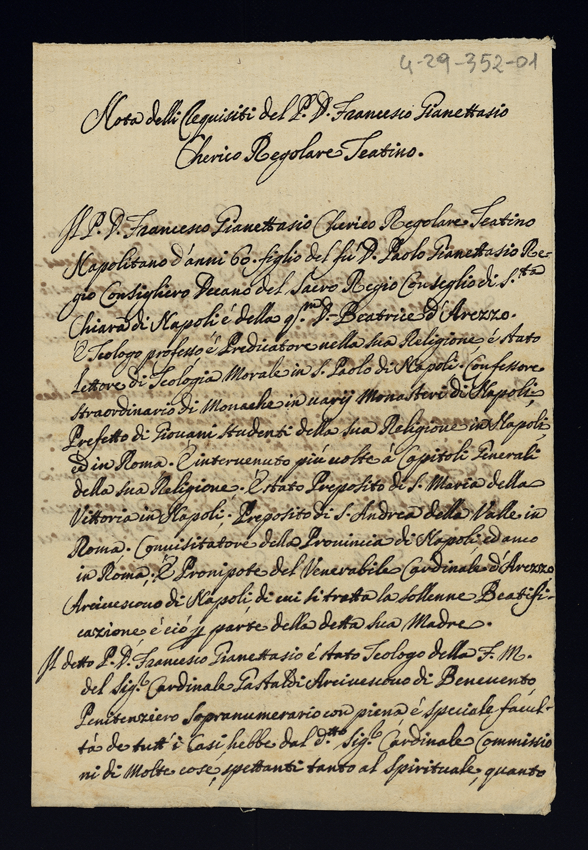 4-29-352-01
Nota delli Requisiti del P. D. Francesco Gianettasio
Cherico Regolare Teatino.
Il P. D. Francesco Gianettasio Cherico Regolare Teatino
Napolitano d'anni 60. figlio del fù D. Paolo Gianettasio Re-
gio Consigliero Decano del Sacro Regio Conseglio di S.ta
Chiara di Napoli é della q.m D. Beatrice d'Arezzo.
É Teologo professo é Predicatore nella sua Religione é stato
lettore di Teologia Morale in S. Paolo di Napoli. Confessore
straordinario di Monache in varij Monasteri di Napoli,
Prefetto di Giouani studenti della sua Religione in Napoli
ed in Roma. É interuenuto piú uolte á Capitoli Generali
della sua Religione. É stato Preposito di S. Maria della
Vittoria in Napoli. Preposito di S. Andrea della Valle in
Roma. Conuisitatore della Prouincia di Napoli, ed anco
in Roma. É Pronipote del Venerabile Cardinale d'Arezzo
Arciuescouo di Napoli, di cui si tratta la sollenne Beatifi-
cazione é ció p parte della detta sua Madre.
Il detto P. D. Francesco Gianettasio é stato Teologo della F. M.
del Sig.r Cardinale Gastaldi Arciuescouo di Beneuento
Penitenziero sopranumerario con piena é speciale facul-
tá de tutt'i Casi hebbe dal d.tto Sig.r Cardinale Commissio
ni di Molte cose, spettanti tanto al Spirituale, quanto